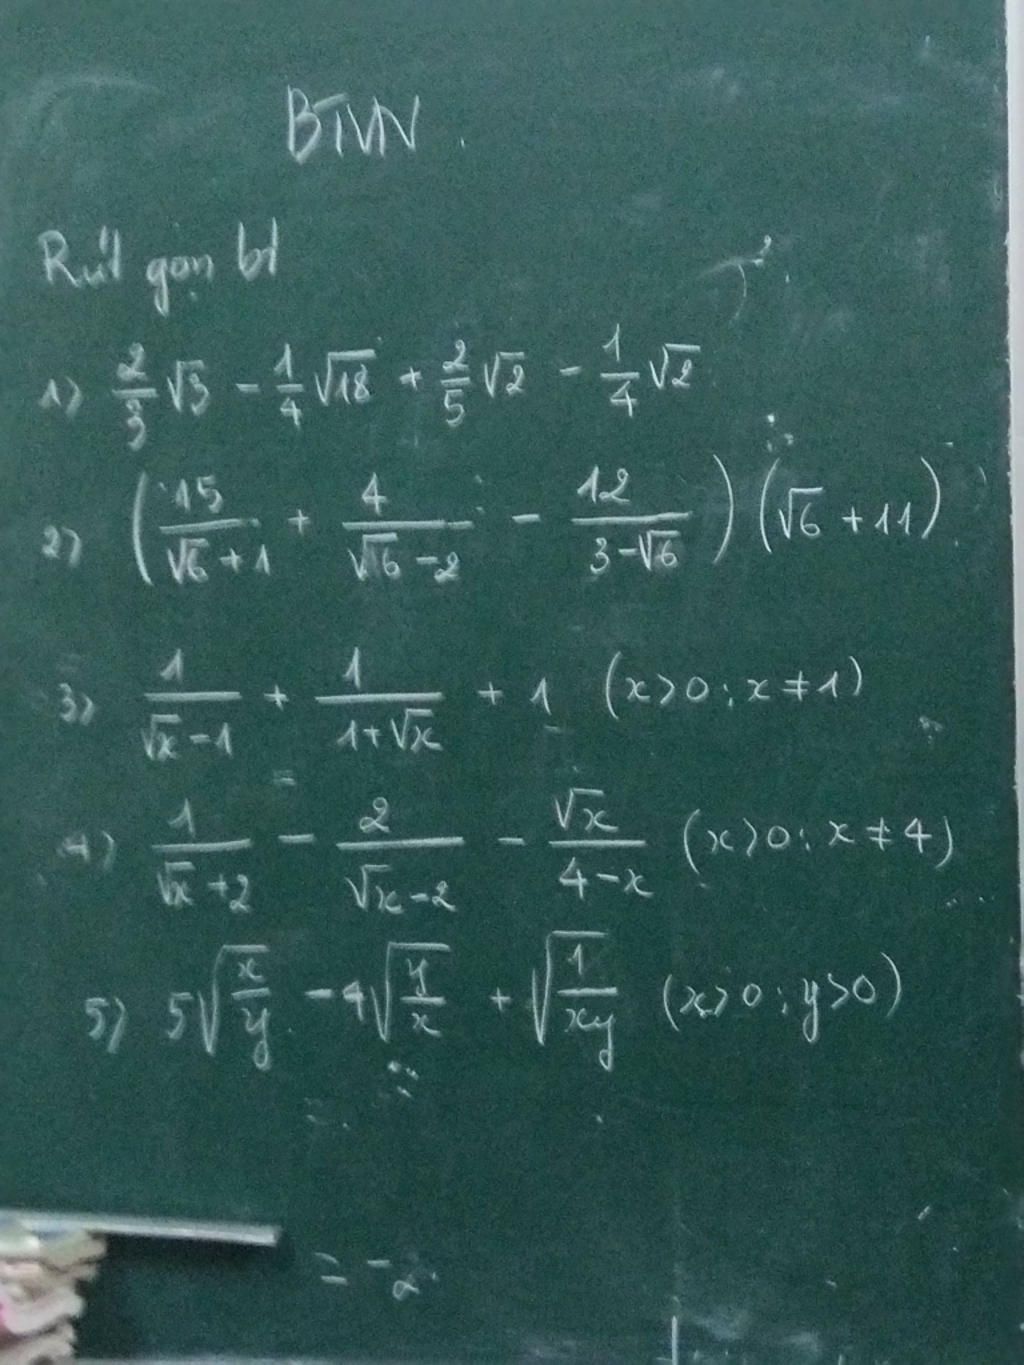 BTVN.
Rút gọn bt
1) 2/3 √3 - 1/4 √18 + 2/5 √2 - 1/4 √2
2) (15/(√6 + 1) + 4/(√6 - 2) - 12/(3 - √6)) (√6 + 11)
3) 1/(√x - 1) + 1/(1 + √x) + 1 (x > 0 ; x ≠ 1)
4) 1/(√x + 2) - 2/(√x - 2) - √x/(4 - x) (x > 0 ; x ≠ 4)
5) 5√(x/y) - 4√(y/x) + √(1/xy) (x > 0 ; y > 0)
= -2